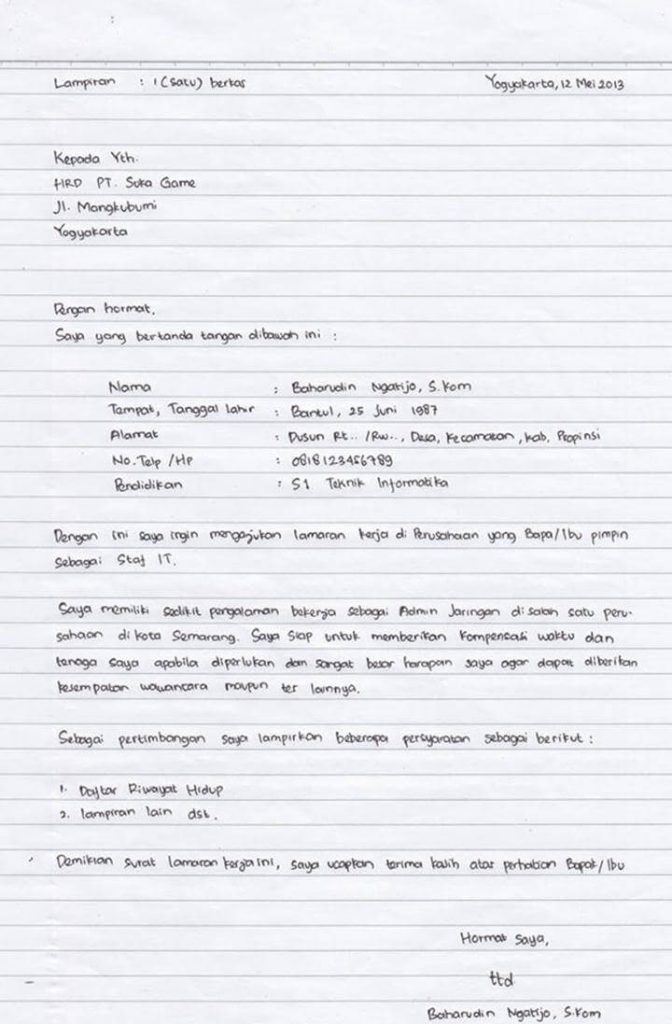 Lampiran : 1 (Satu) berkas Yogyakarta, 12 Mei 2013
Kepada Yth.
HRD PT. Suka Game
Jl. Mangkubumi
Yogyakarta
Dengan hormat,
Saya yang bertanda tangan dibawah ini :
Nama : Baharudin Ngatijo, S.Kom
Tempat, Tanggal lahir : Bantul, 25 Juni 1987
Alamat : Dusun Rt.. /Rw.., Desa, Kecamatan, Kab, Propinsi
No. Telp /HP : 0818123456789
Pendidikan : S1 Teknik Informatika
Dengan ini saya ingin mengajukan lamaran kerja di Perusahaan yang Bapa/Ibu pimpin
Sebagai Staf IT.
Saya memiliki sedikit pengalaman bekerja sebagai Admin Jaringan di salah satu peru-
sahaan di kota Semarang. Saya Siap untuk memberikan kompensasi waktu dan
tenaga saya apabila diperlukan dan sangat besar harapan saya agar dapat diberikan
kesempatan wawancara maupun tes lainnya.
Sebagai pertimbangan saya lampirkan beberapa persyaratan sebagai berikut :
1. Daftar Riwayat Hidup
2. lampiran lain dst.
Demikian surat lamaran kerja ini, saya ucapkan terima kasih atas perhatian Bapak/Ibu
Hormat Saya,
ttd
Baharudin Ngatijo, S.Kom